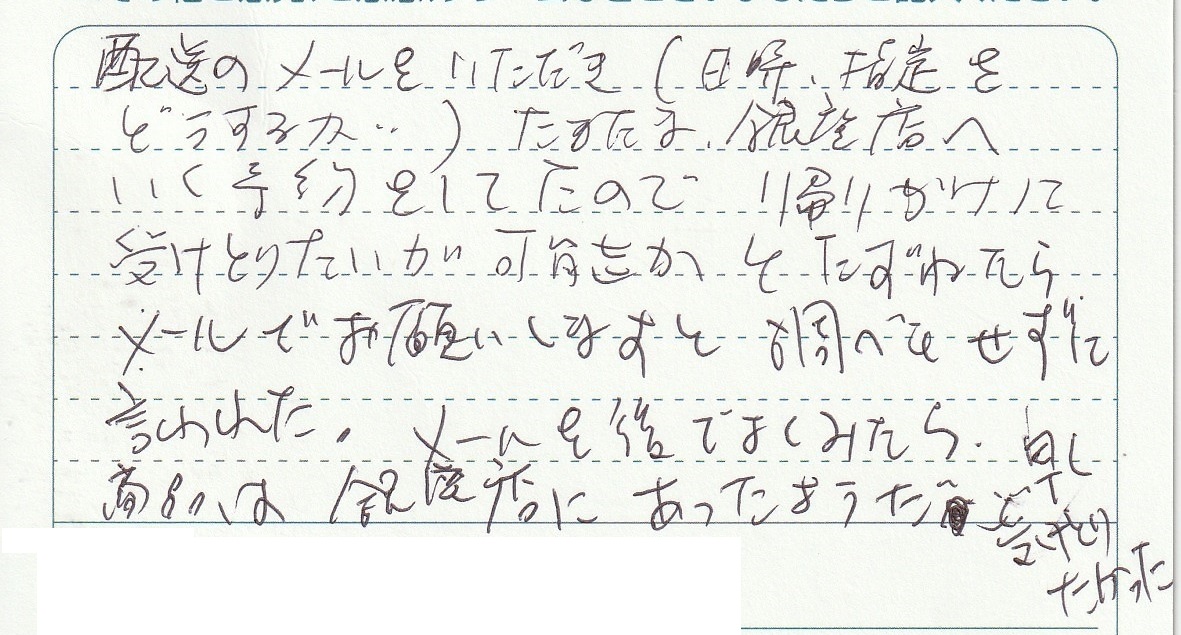 配送のメールをいただき（日時、指定を
どうするか‥）たまたま、銀座店へ
いく予約をしてたので 帰りがけに
受けとりたいが可能かとたずねたら
メールでお願いしますと 調べもせずに
言われた。メールを後でよくみたら、
商品は 銀座店にあったようだ
受けとり
たかった